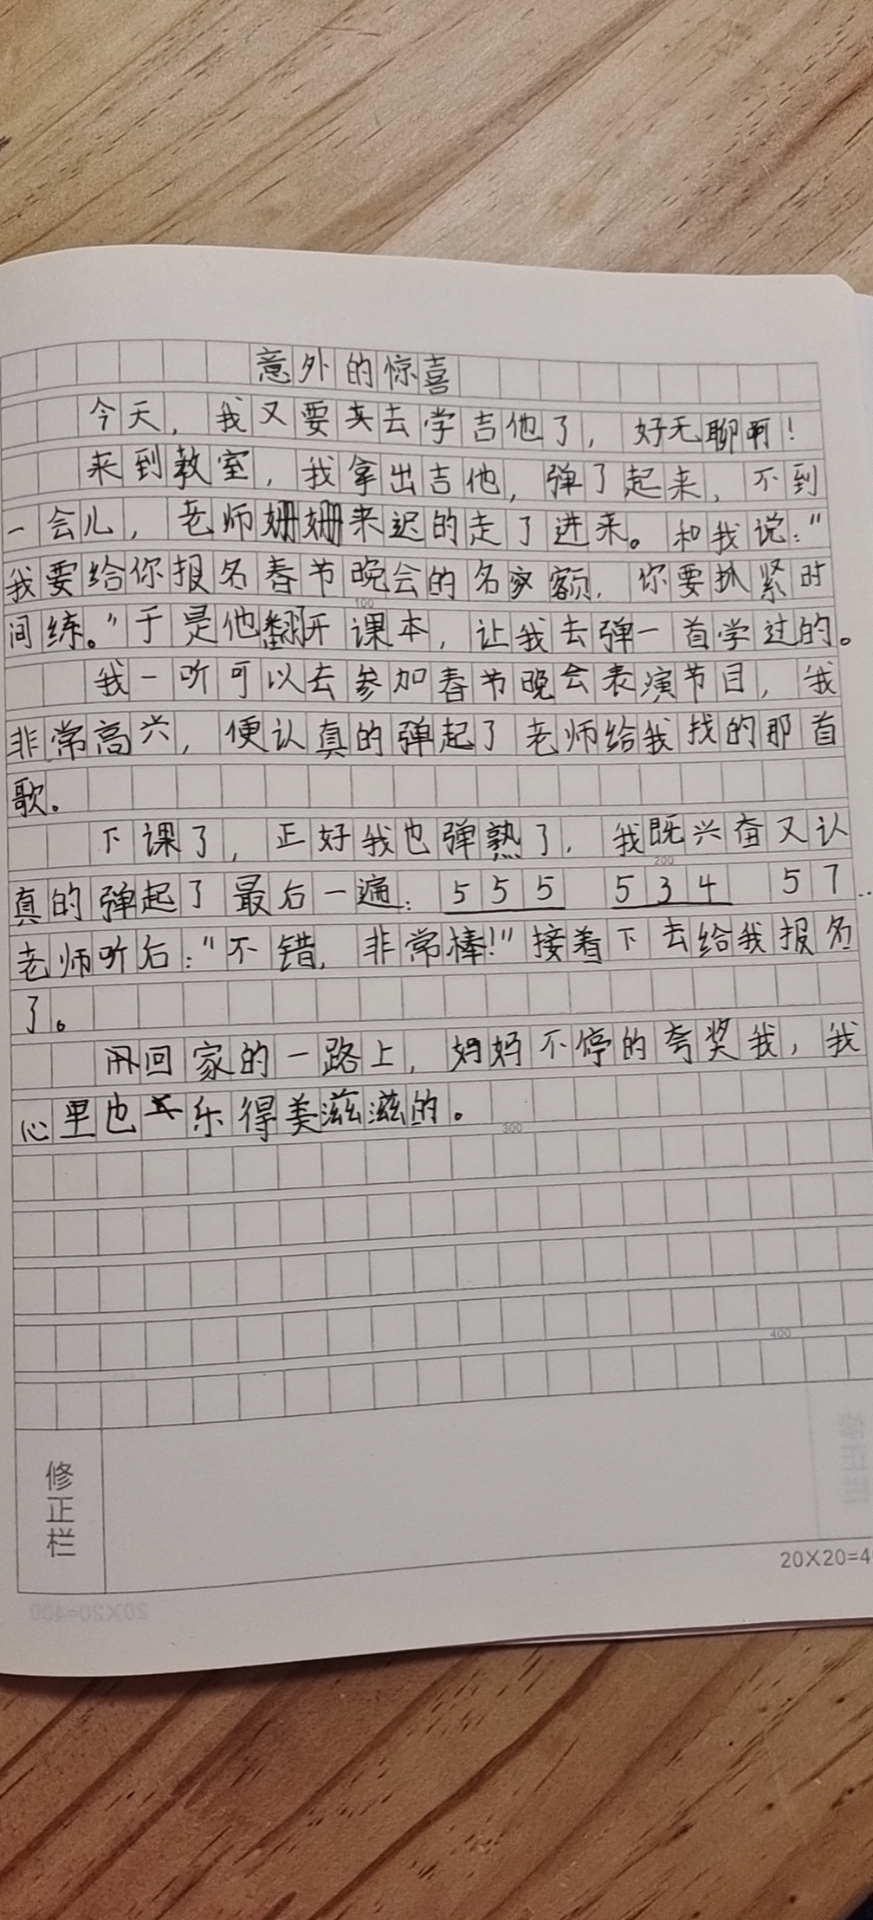 意外的惊喜
今天，我又要去学吉他了，好无聊啊！
来到教室，我拿出吉他，弹了起来，不到
一会儿，老师姗姗来迟的走了进来。和我说：“
我要给你报名春节晚会的名额，你要抓紧时
100
间练。”于是他翻开课本，让我去弹一首学过的。
我一听可以去参加春节晚会表演节目，我
非常高兴，便认真的弹起了老师给我找的那首
歌。
下课了，正好我也弹熟了，我既兴奋又认
200
真的弹起了最后一遍：555 534 57…
老师听后：“不错，非常棒！”接着下去给我报名
了。
回家的一路上，妈妈不停的夸奖我，我
心里也乐得美滋滋的。
300
400
修正栏
20X20=4